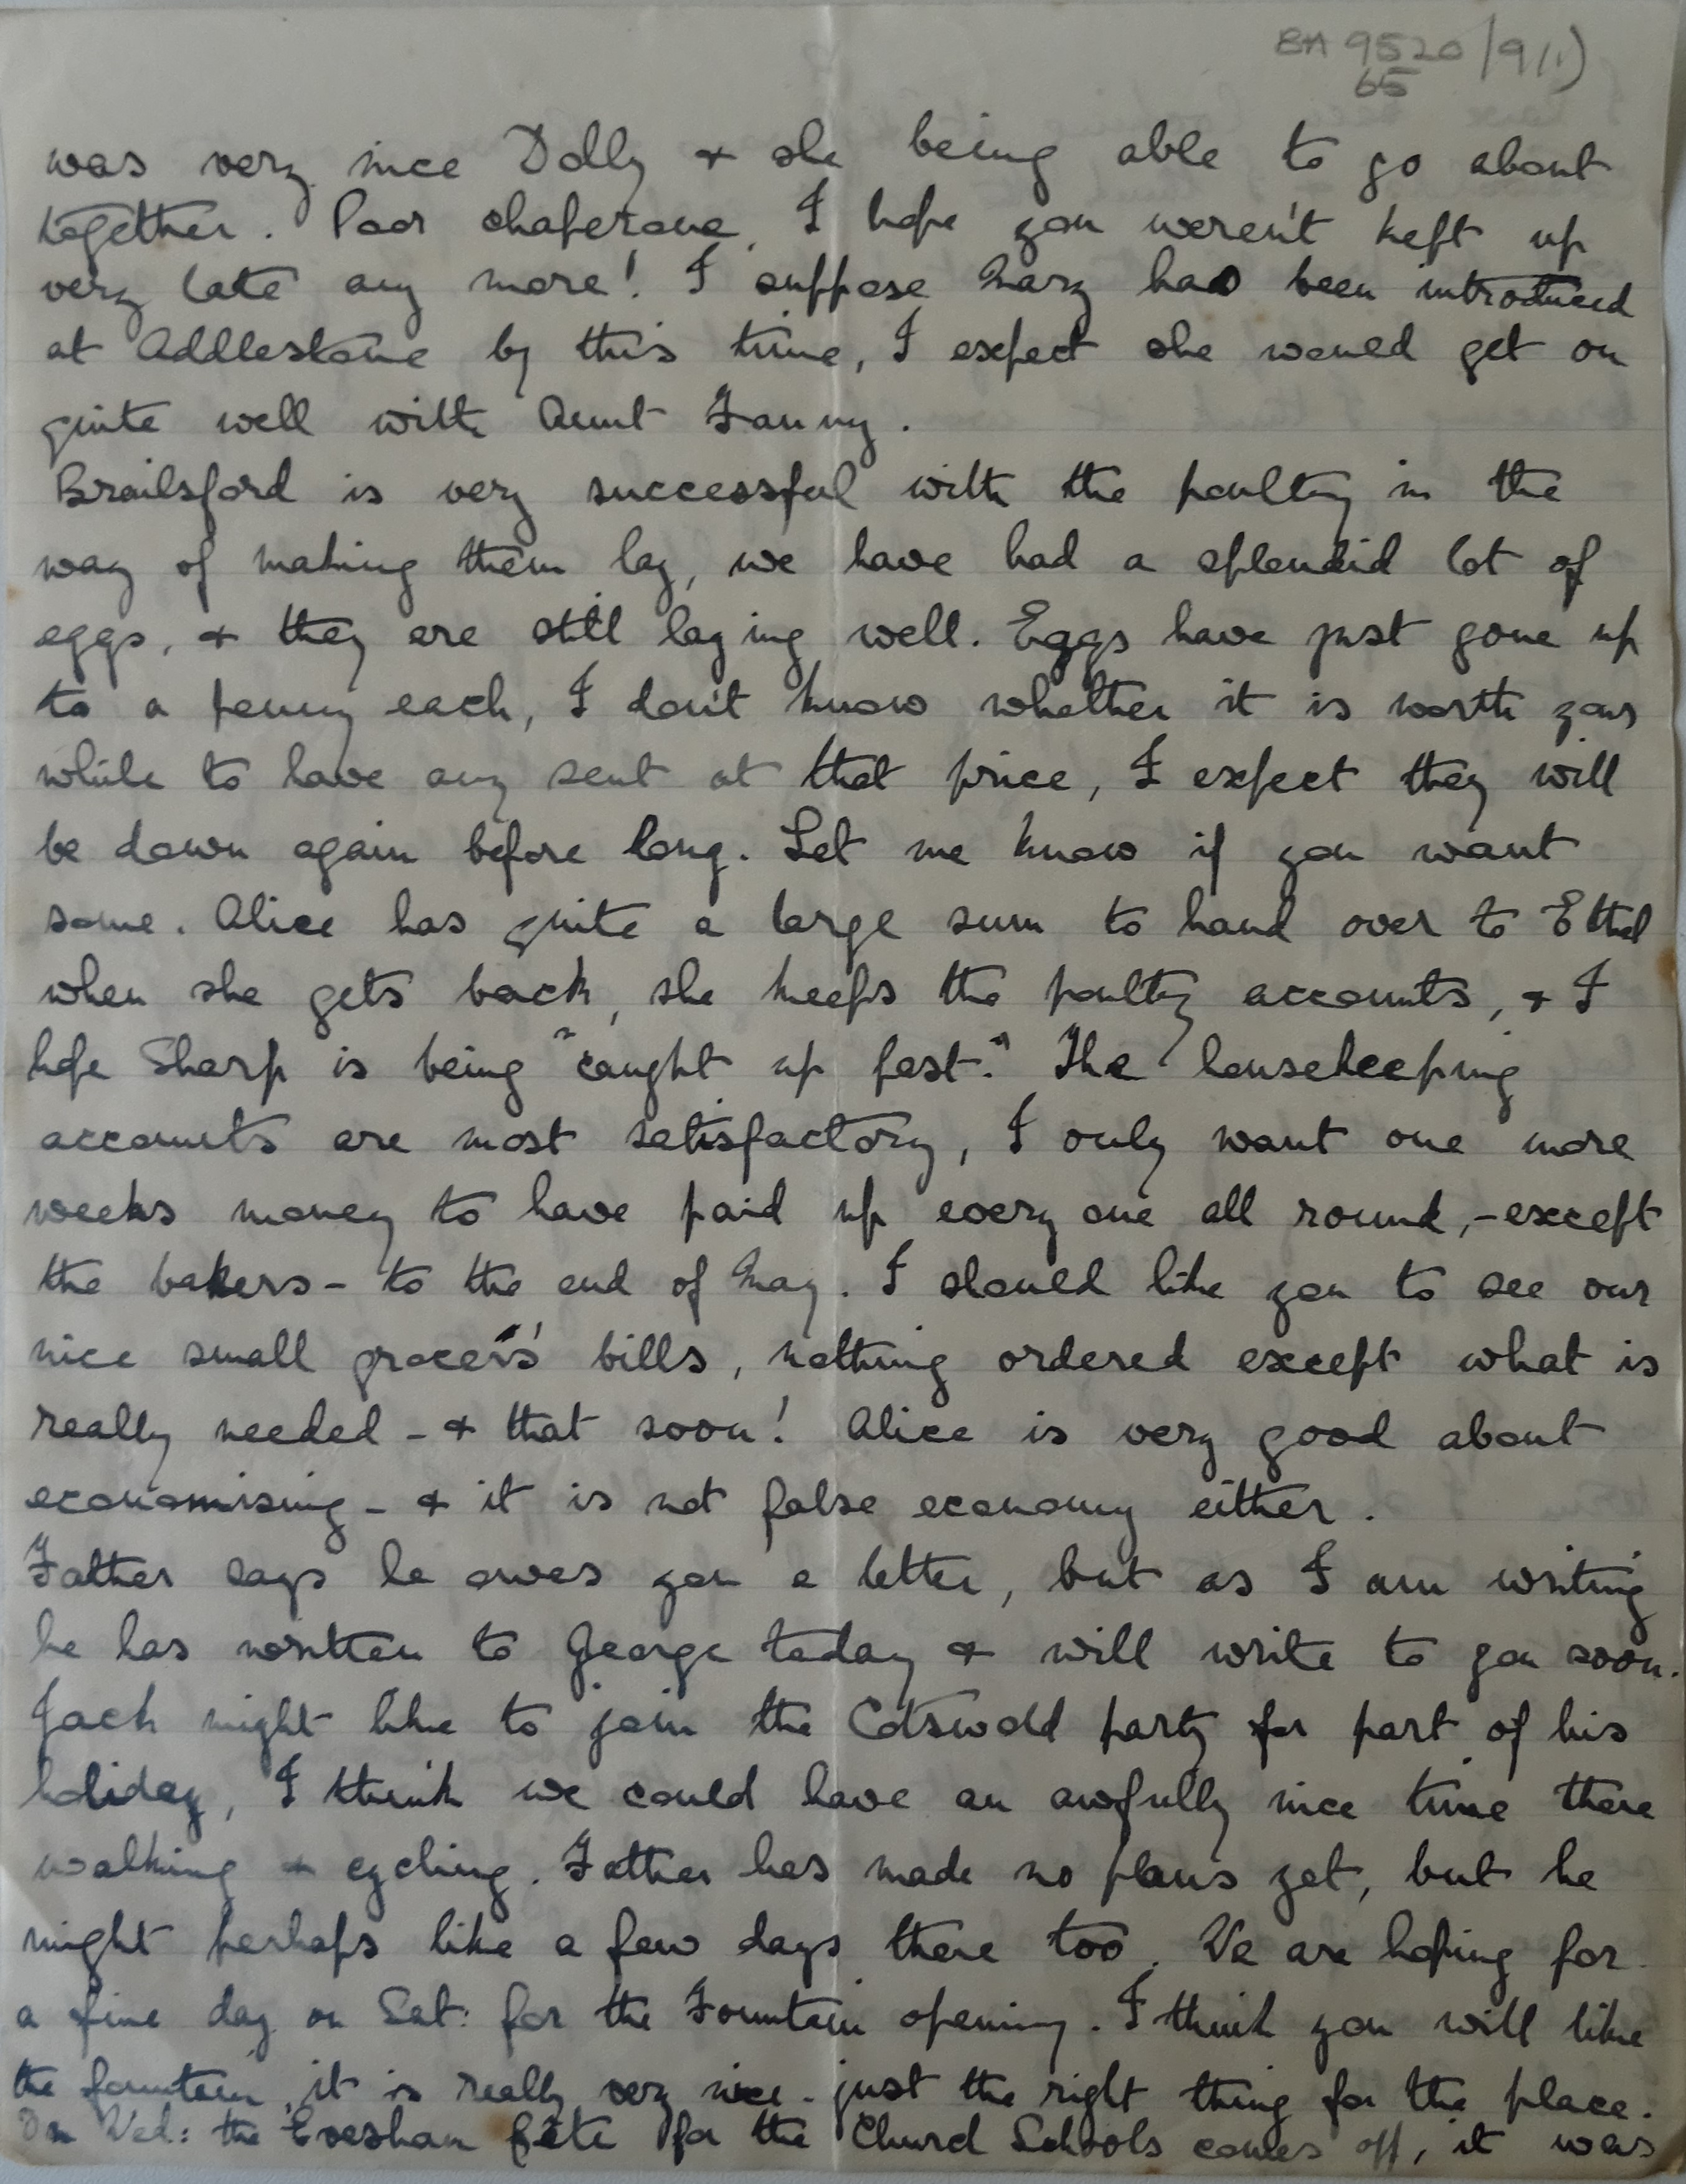 BA 9520/9(1)
65
was very nice Dolly & she being able to go about
together. Poor chaperone, I hope you weren't kept up
very late any more! I suppose Mary has been introduced
at Addlestone by this time, I expect she would get on
quite well with Aunt Fanny.
Brailsford is very successful with the poultry in the
way of making them lay, we have had a splendid lot of
eggs, & they are still laying well. Eggs have just gone up
to a penny each, I don't know whether it is worth your
while to have any sent at that price, I expect they will
be down again before long. Let me know if you want
some. Alice has quite a large sum to hand over to Ethel
when she gets back, she keeps the poultry accounts, & I
hope Sharp is being "caught up fast." The housekeeping
accounts are most satisfactory, I only want one more
weeks money to have paid up every one all round, - except
the bakers - to the end of May. I should like you to see our
nice small grocers' bills, nothing ordered except what is
really needed - & that soon! Alice is very good about
economising - & it is not false economy either.
Father says he owes you a letter, but as I am writing
he has written to George today & will write to you soon.
Jack might like to join the Cotswold party for part of his
holiday, I think we could have an awfully nice time there
walking & cycling. Father has made no plans yet, but he
might perhaps like a few days there too. We are hoping for
a fine day on Sat: for the Fountain opening. I think you will like
the fountain, it is really very nice - just the right thing for the place.
On Wed: the Evesham fête for the Church Schools comes off, it was